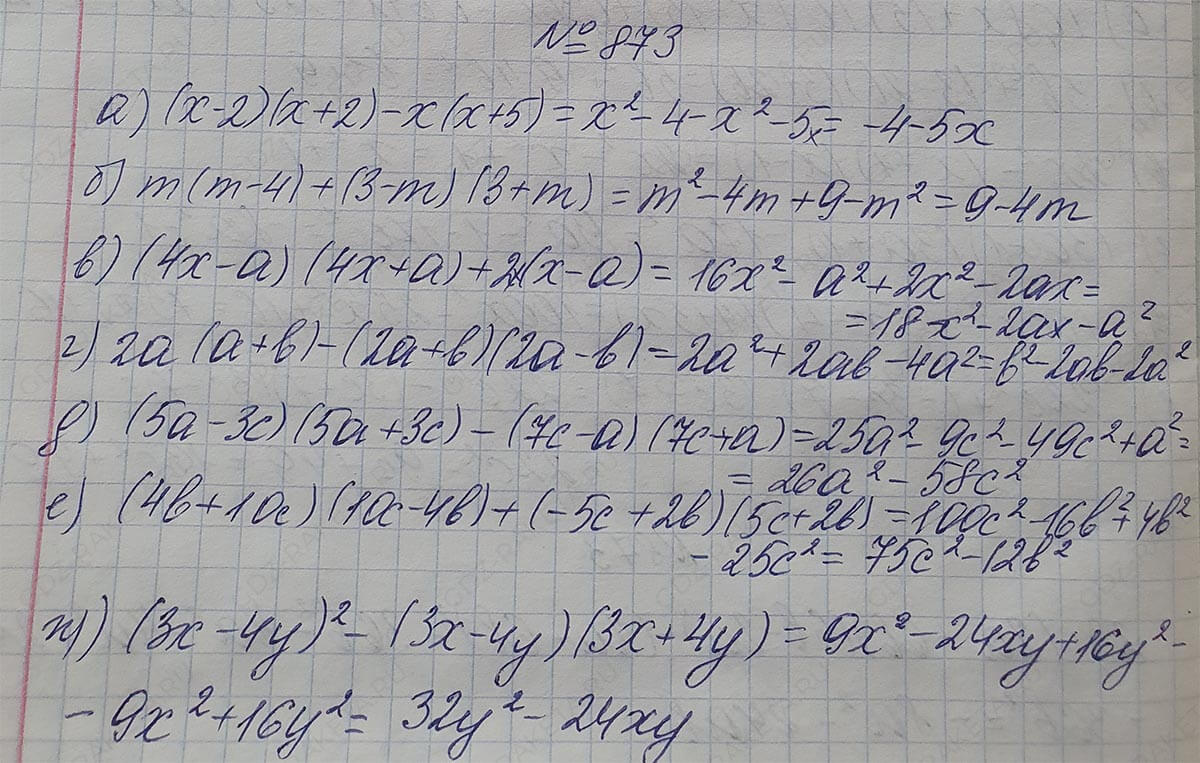 № 873
а) (x-2)(x+2)-x(x+5) = x²-4-x²-5x= -4-5x
б) m(m-4)+(3-m)(3+m) = m²-4m+9-m² = 9-4m
в) (4x-a)(4x+a)+2x(x-a) = 16x²-a²+2x²-2ax=
=18x²-2ax-a²
г) 2a(a+b)-(2a+b)(2a-b)=2a²+2ab-4a²=b²-2ab-2a²
д) (5a-3c)(5a+3c)-(7c-a)(7c+a)=25a²-9c²-49c²+a²=
= 26a²-58c²
е) (4b+10c)(10c-4b)+(-5c+2b)(5c+2b)=100c²-16b²+4b²
-25c²= 75c²-12b²
ж) (3x-4y)²-(3x-4y)(3x+4y) = 9x²-24xy+16y²-
-9x²+16y²= 32y²-24xy